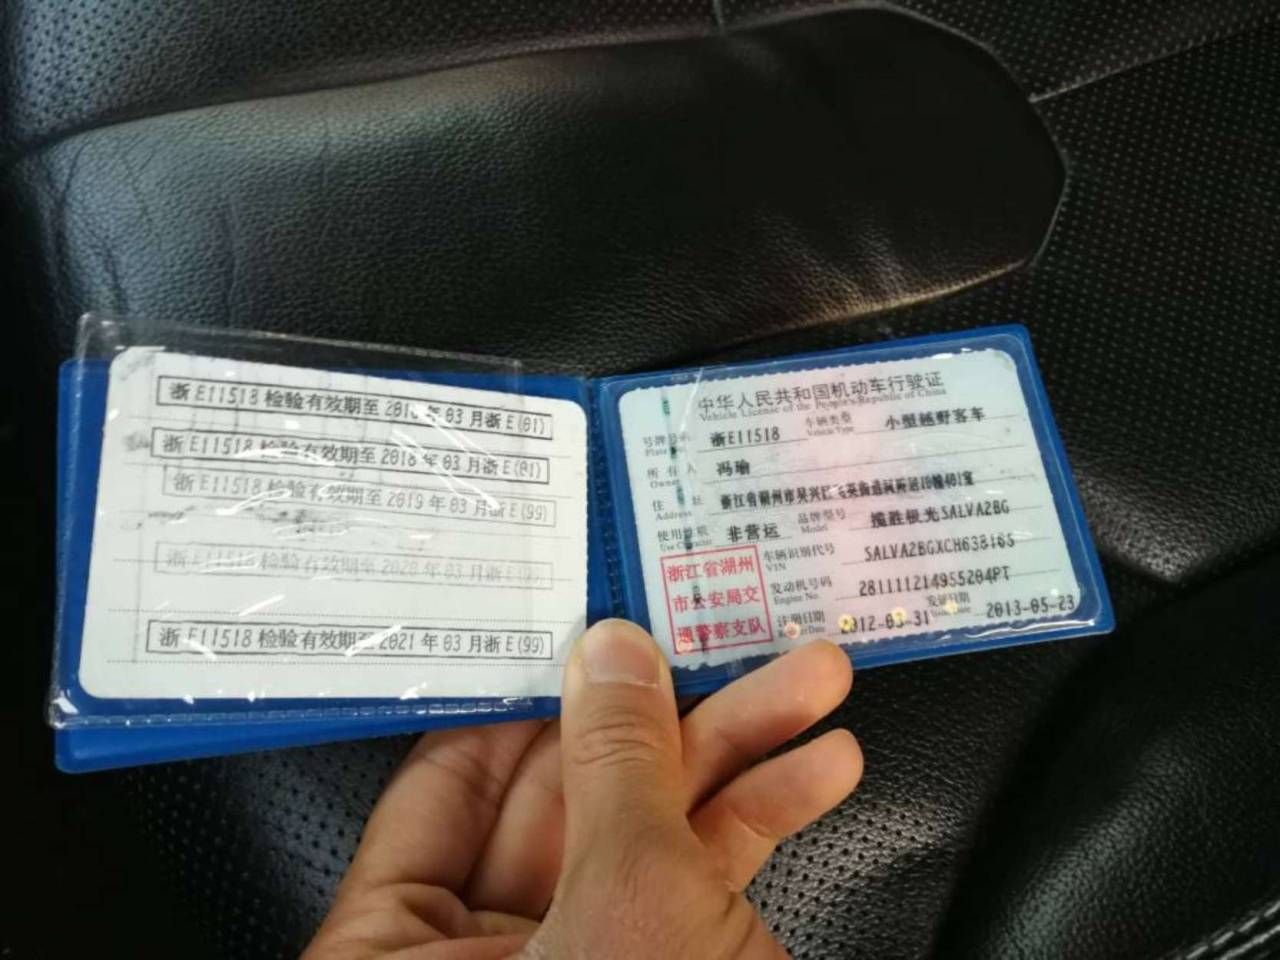 浙E11518检验有效期至2016年03月浙E(01)
浙E11518检验有效期至2018年03月浙E(01)
浙E11518检验有效期至2019年03月浙E(99)
浙E11518检验有效期至2020年03月浙E(99)
浙E11518检验有效期至2021年03月浙E(99)
中华人民共和国机动车行驶证
Vehicle License of the People's Republic of China
号牌号码 浙E11518 车辆类型 小型越野客车
Plate Vehicle Type
所有人 冯瑜
Owner
住址 浙江省湖州市吴兴区飞英街道
Address
使用性质 非营运 品牌型号 揽胜极光SALVA2BG
Use Character Model
浙江省湖州
市公安局交
通警察支队
车辆识别代号
VIN
发动机号码
Engine No.
注册日期 2012-03-31 发证日期 2013-05-23
Register Date Issue Date